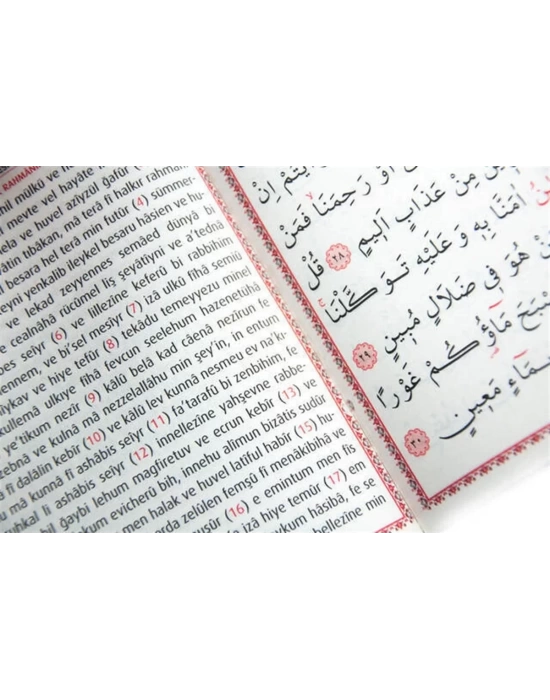 RAHMANI
hil mülkü ve h
meyte vel hayâte
ela ve huvel azîyzül gafûr
âtin tıbâkan, mâ terâ fî halkır rahmân
besara hel terâ min futûr (4) sümmer-
eyni yenkalib ileykel besaru hâsien ve hu-
ve lekad zeyyennes semâed dünyâ bi
e cealnâhâ rücûmel liş şeyâtîyni ve a'tednâ
bes seiyr (6) ve lillezîne keferû bi rabbihim
ennem, ve bi'sel mesîyr (7) izâ ülkû fîhâ semiû
îykav ve hiye tefûr (8) tekâdu temeyyezu minel
kullemâ ulkıye fîhâ fevcun seelehum hazenetühâ
e'tikum nezîr (9) kâlû belâ kad câenâ nezîrun fe
zebnâ ve kulnâ mâ nezzelallâhu min şey'in, in entum
â fî dalâlin kebîr (10) ve kâlû lev kunnâ nesmeu ev na'kı-
u mâ kunnâ fî ashâbis seiyr (11) fa'tarafû bi zenbihim, fe
uhkal li ashâbis seiyr (12) innellezîne yahşevne rabbe-
bil ğaybi lehum mağfiretuv ve ecrun kebîr (13) ve
kum evicherû bih, innehu alîmun bizâtis sudûr
men halak ve huvel latîful habîr (15) hu-
arda zelûlen femşû fî menâkibihâ ve
uşûr (16) e emintum men fis
e izâ hiye temûr (17) em
ykum hâsibâ, fe se
bellezîne min
اِنْ
اَوْ رَحِمَنَا فَمَنْ
مِنْ عَذَابٍ اَلِيمٍ ٢٨ قُلْ
اٰمَنَّا بِهِ وَعَلَيْهِ تَوَكَّلْنَا
هُوَ فِى ضَلَالٍ مُبِينٍ ٢٩
مَاؤُكُمْ غَوْرًا
مَعِينٍ ٣٠